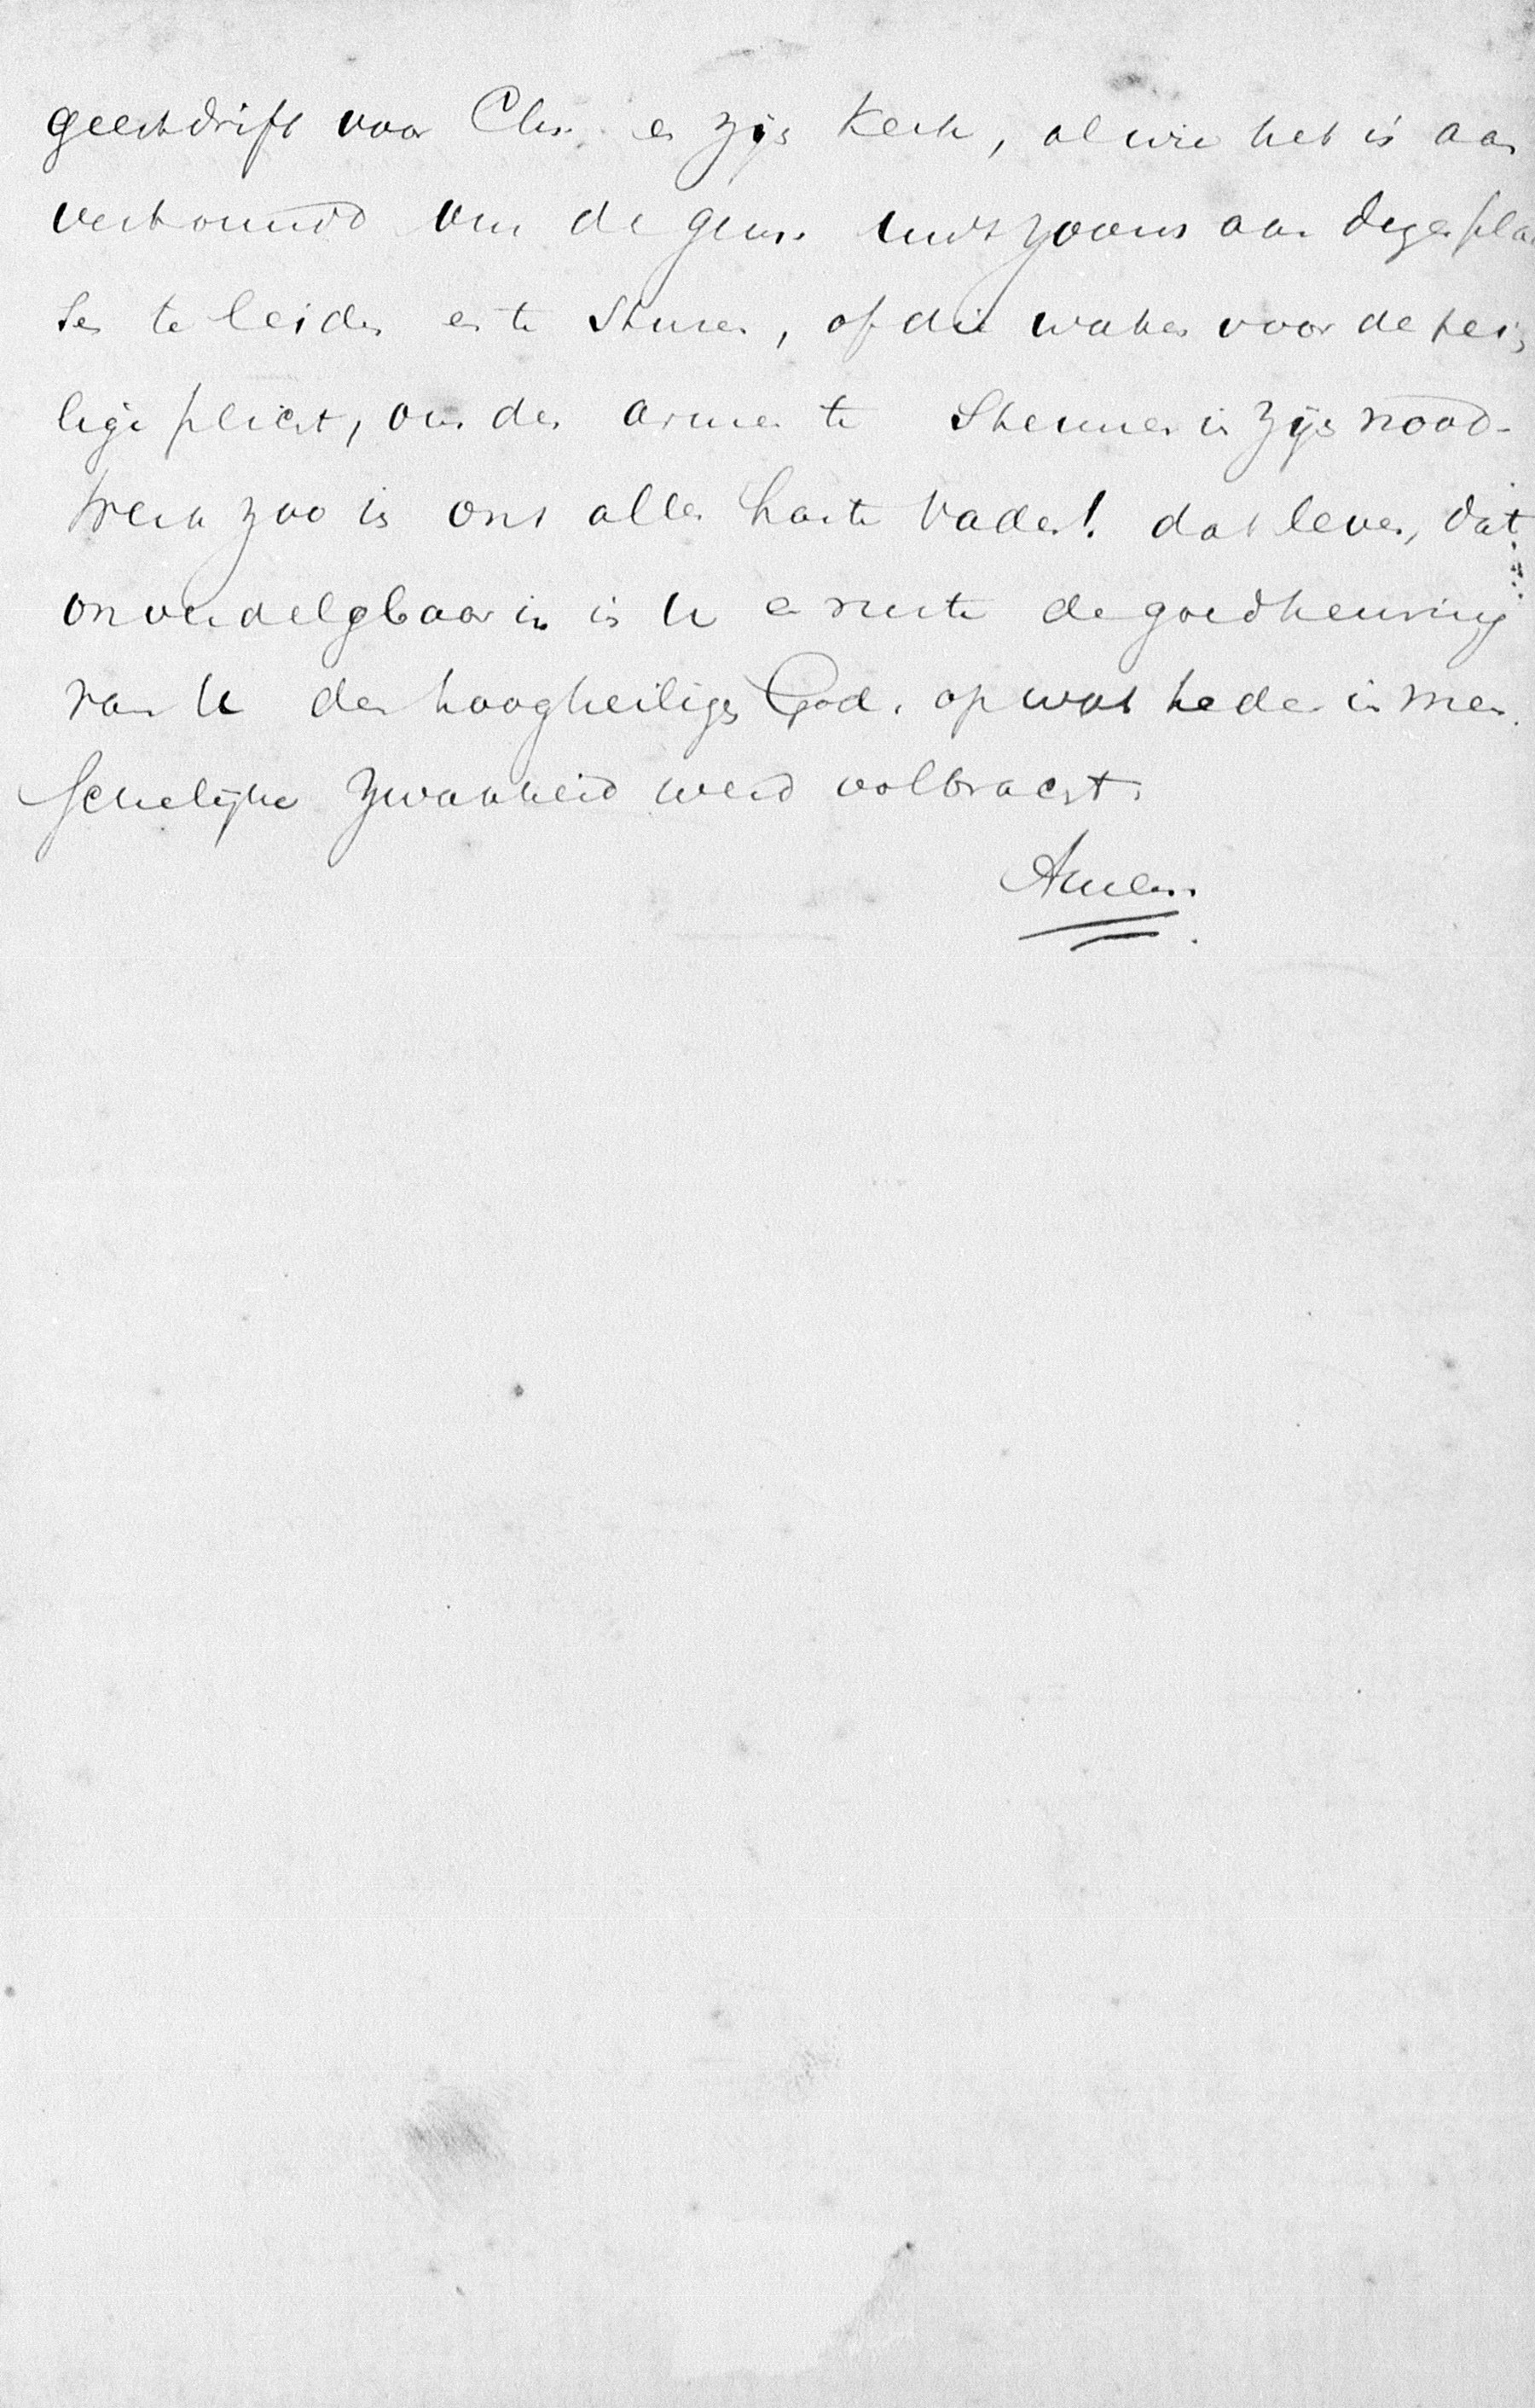 geestdrift voor Chr. en zijn Kerk, al wie het is aan
vertrouwd om de gem. uws zoons aan dezen plaat
sen te leiden en te sturen, of die waken voor de hei,
lige plicht, om den armen te steunen in zijn nood-
Werk zoo in ons aller harte Vader! dat leven, dat
onverdelgbaar is in U en ruste de goedkeuring
van U den hoogheiligen God. op wat heden in men
schelijke zwakheid werd volbracht.
Amen.